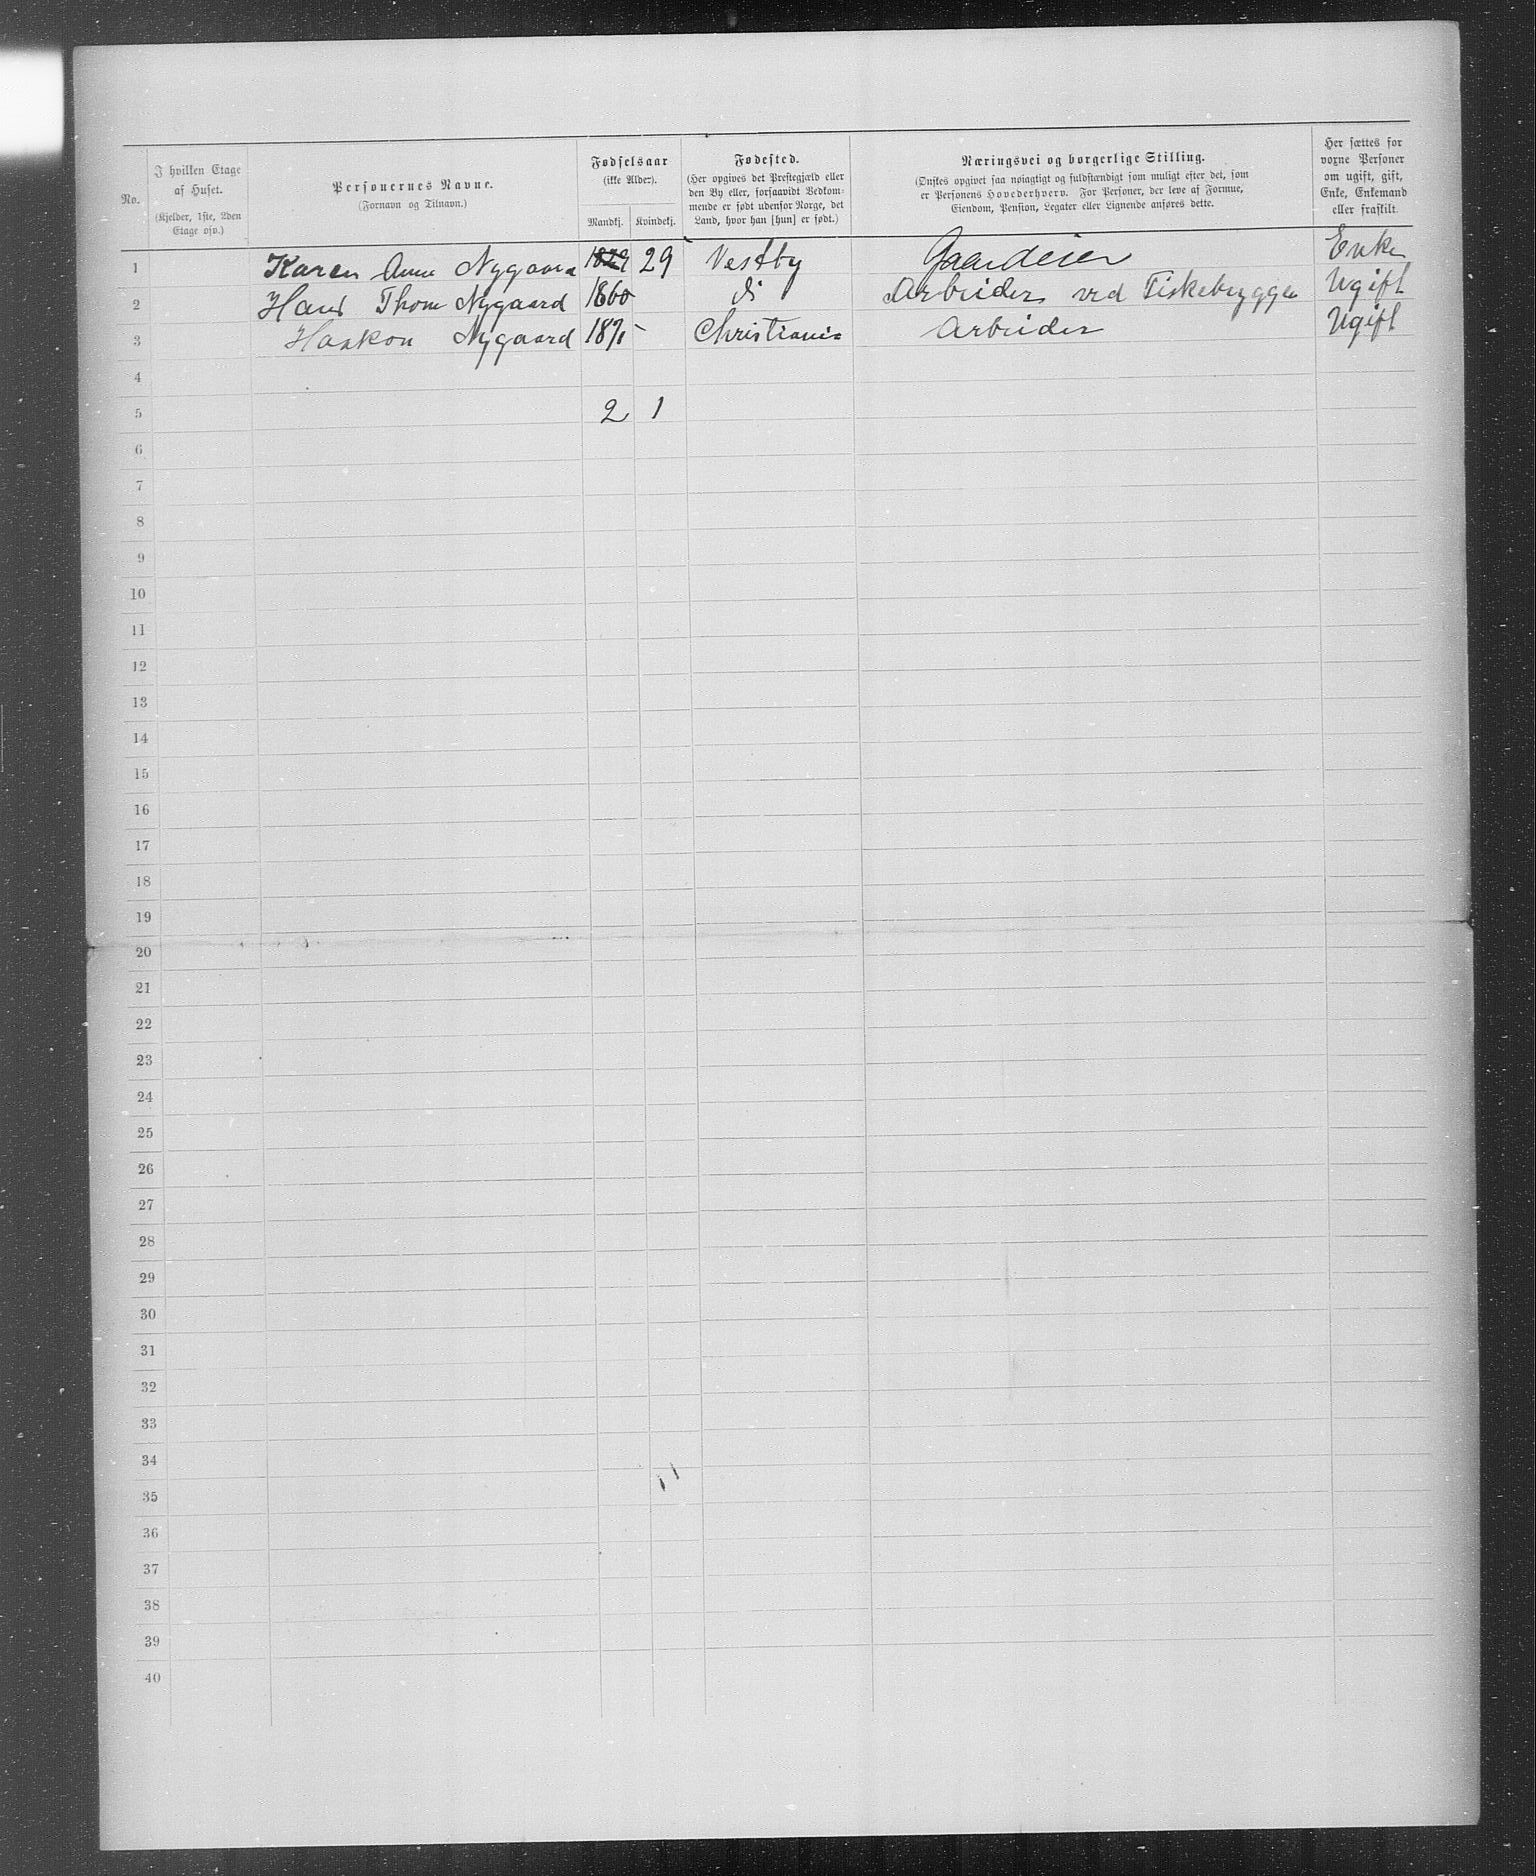 No.
I hvilken Etage af Huset.
(Kjelder, 1ste, 2den Etage osv.)
Personernes Navne.
(Fornavn og Tilnavn.)
Fødselsaar
(ikke Alder).
Mandkj. Kvindekj.
Fødested.
(Her opgives det Prestegjæld eller
den By eller, forsaavidt Vedkom-
mende er født udenfor Norge, det
Land, hvor han [hun] er født.)
Næringsvei og borgerlige Stilling.
(Ønskes opgivet saa nøiagtigt og fuldstændigt som muligt efter det, som
er Personens Hovederhverv. For Personer, der leve af Formue,
Eiendom, Pension, Legater eller Lignende anføres dette.
Her sættes for
voxne Personer
om ugift, gift,
Enke, Enkemand
eller fraskilt.
1 Karen Anne Nygaard 1829 29 Vestby Gaardeier Enke
2 Hans Thom Nygaard 1860 di Arbeider ved Fiskebryggen Ugift
3 Haakon Nygaard 1871 Christiania Arbeider Ugift
4
5 2 1
6
7
8
9
10
11
12
13
14
15
16
17
18
19
20
21
22
23
24
25
26
27
28
29
30
31
32
33
34
35
36
37
38
39
40